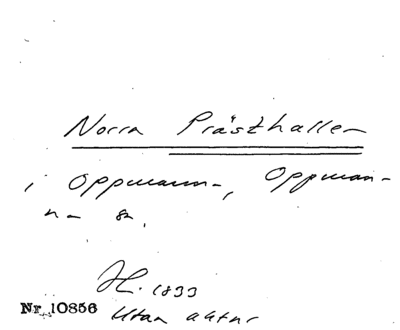 Norra Prästhallen
i Oppmanna, Oppman-
na sn.
H. 1833
Nr 10856
Utan aktnr